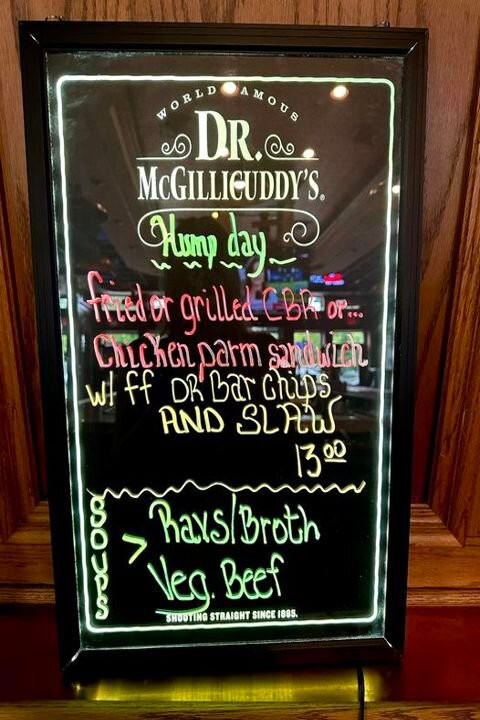 WORLD FAMOUS
DR.
McGILLICUDDY'S®
Hump day
fried or grilled CBR or...
Chicken parm sandwich
w/ ff OR Bar Chips
AND SLAW
13 00
SOUPS > Ravs/Broth
Veg. Beef
SHOOTING STRAIGHT SINCE 1865.